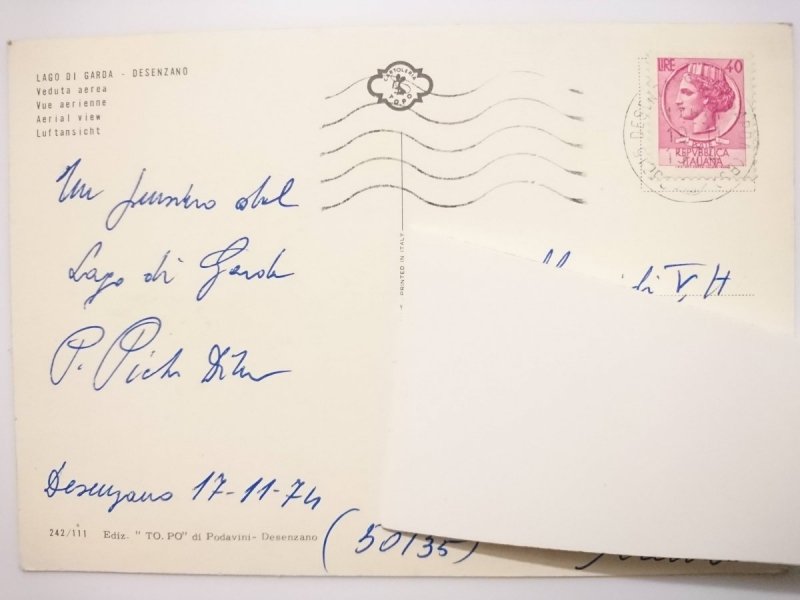 LAGO DI GARDA - DESENZANO
Veduta aerea
Vue aérienne
Aerial view
Luftansicht
CARTOLERIA
TO.PO
LIRE 40
POSTE
REPVBBLICA
ITALIANA
Un pensiero dal
Lago di Garda
P.
PRINTED IN ITALY
V, H
Desenzano 17-11-74
(50135)
242/111 Ediz. " TO. PO" di Podavini- Desenzano